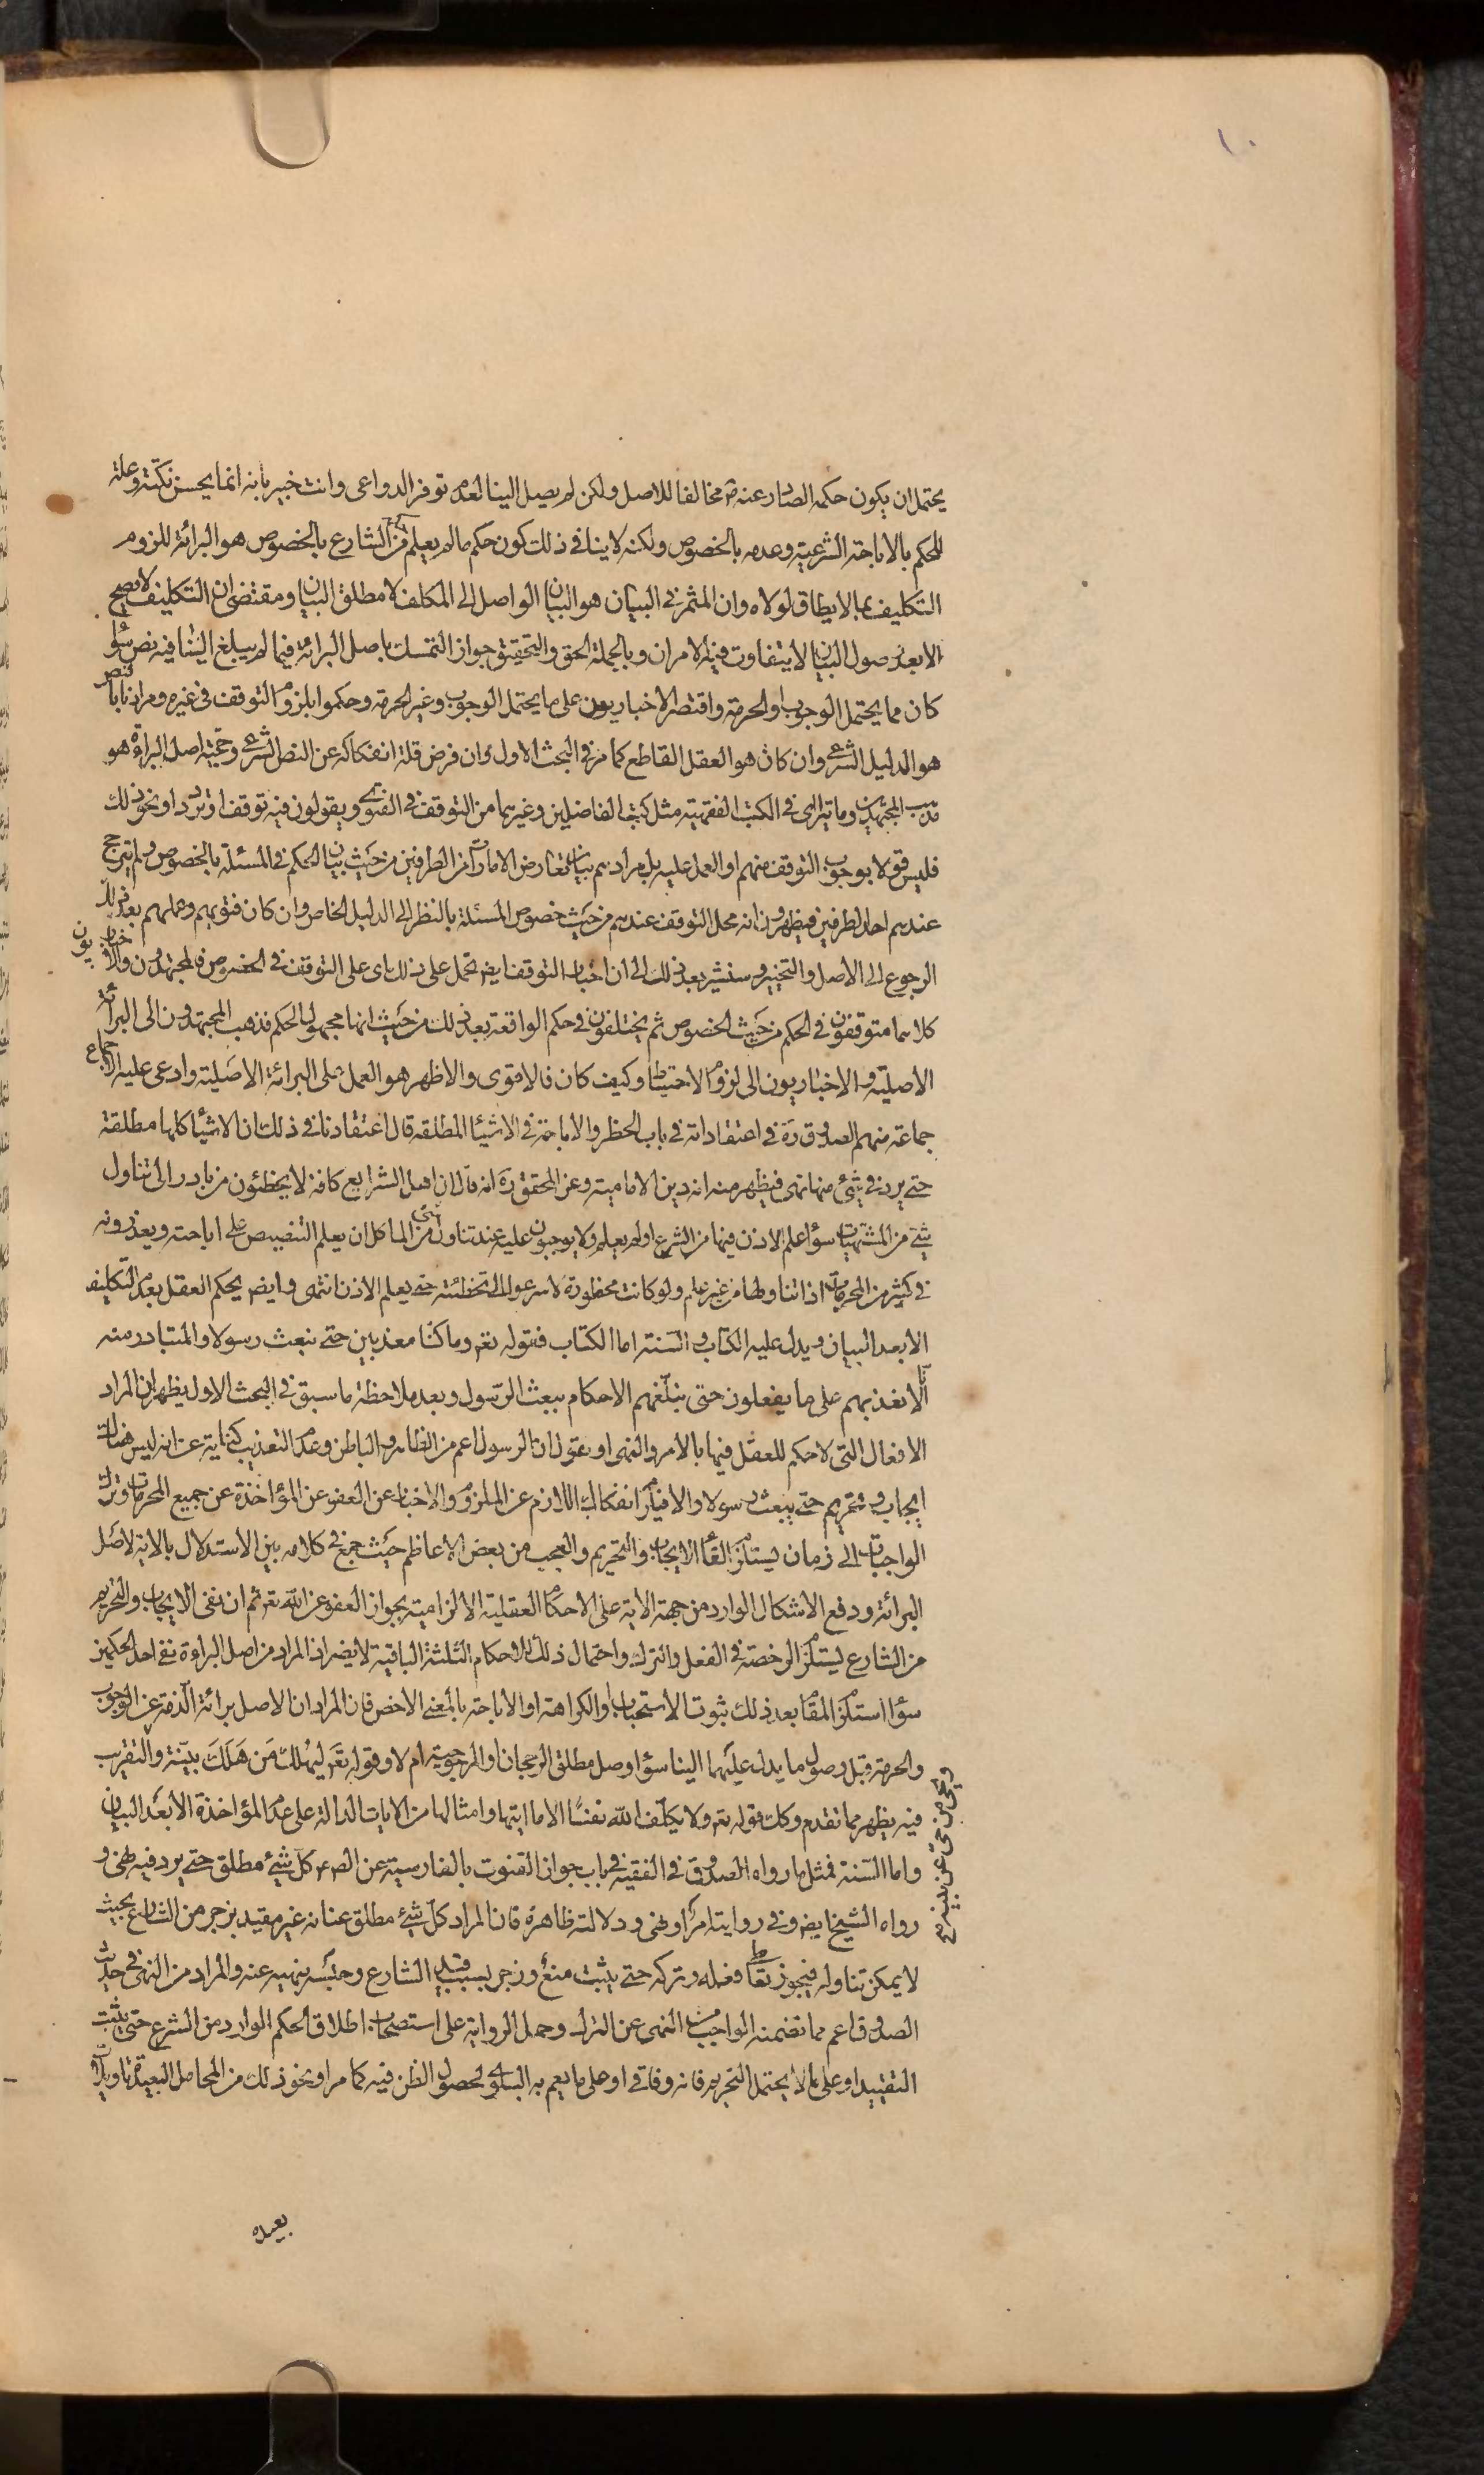 ١٠
يحتمل ان يكون حكمه الصادر عنه ص مخالفا للاصل ولكن لم يصل الينا لعدم توفر الدواعى وانت خبير بانه انما يحسن نكتة وعلة
للحكم بالاباحة الشرعية وعدمه بالخصوص ولكنه لا ينافى ذلك كون حكم ما لم يعلم حكمه من الشارع بالخصوص هو البرائة للزوم
التكليف بما لا يطاق لولاه وان المثمر فى البيان هو البيان الواصل الى المكلف لا مطلق البيان ومقتضى ان التكليف لا يصح
الا بعد وصول البيان لا يتفاوت فيه الامران وبالجملة الحق والتحقيق جواز التمسك باصل البرائة فيما لم يبلغ الينا فيه نص سواء
كان مما يحتمل الوجوب او الحرمة واقتصر الاخباريون على ما يحتمل الوجوب وغير الحرمة وحكموا بلزوم التوقف فى غيره ومرادنا بالنص
هو الدليل الشرعى وان كان هو العقل القاطع كما مر فى البحث الاول وان فرض قلة انفكاكه عن النص الشرعى وحجية اصل البراءة هو
مذهب المجتهدين وما يترائى فى الكتب الفقهية مثل كتب الفاضلين وغيرهما من التوقف فى الفتوى ويقولون فيه توقف او تردد او نحو ذلك
فليس قولا بوجوب التوقف منهم او العمل عليه بل مرادهم بيان تعارض الامارات من الطرفين من حيث بيان الحكم فى المسئلة بالخصوص ولم يترجح
عندهم احد الطرفين فيظهرون انه محل التوقف عندهم من حيث خصوص المسئلة بالنظر الى الدليل الخاص وان كان فتويهم وعملهم بعد ذلك
الرجوع الى الاصل والتخيير وسنشير بعد ذلك الى ان اخبار التوقف ايض تحمل على ذلك اى على التوقف فى الخصوص فالمجتهدون والاخباريون
كلاهما متوقفون فى الحكم من حيث الخصوص ثم يختلفون فى حكم الواقعة بعد ذلك من حيث انها مجهول الحكم فذهب المجتهدون الى البرائة
الاصلية والاخباريون الى لزوم الاحتياط وكيف كان فالاقوى والاظهر هو العمل على البرائة الاصلية وادعى عليه الاجماع
جماعة منهم الصدوق ره فى اعتقاداته فى باب الحظر والاباحة فى الاشياء المطلقه قال اعتقادنا فى ذلك ان الاشياء كلها مطلقة
حتى يرد فى شئ منها نهى فيظهر منه انه دين الامامية وعن المحقق ره انه قال ان اهل الشرايع كافة لا يخطئون من بادر الى تناول
شئ من المشتهيات سواء علم الاذن فيها من الشرع او لم يعلم ولا يوجبون عليه عند تناول شئ من الماكل ان يعلم التنصيص على اباحته ويعذرونه
فى كثير من المحرمات اذا تناولها من غير علم ولو كانت محظورة لاسرعوا الى تخطئته حتى يعلم الاذن انتهى وايض يحكم العقل بعدم التكليف
الا بعد البيان ويدل عليه الكتاب والسنة اما الكتاب فقوله تعر وما كنا معذبين حتى نبعث رسولا والمتبادر منه
انا لا نعذبهم على ما يفعلون حتى نبلغهم الاحكام ببعث الرسول وبعد ملاحظة ما سبق فى البحث الاول يظهر ان المراد
الافعال التى لا حكم للعقل فيها بالامر والنهى او نقول ان الرسول اعم من الظاهر والباطن وعدم التعذيب كناية عن انه ليس هناك
ايجاب و تحريم حتى يبعث رسولا والا فيلزم انفكاك اللازم عن الملزوم والاخبار عن العفو عن المؤاخذة عن جميع المحرمات وترك
الواجبات الى زمان يستلزم القاء الايجاب والتحريم والعجب من بعض الاعاظم حيث جمع فى كلامه بين الاستدلال بالاية لاصل
البرائة ودفع الاشكال الوارد من جهة الاية على الاحكام العقلية الالزامية بجواز العفو عن الله تعر ثم ان نفى الايجاب والتحريم
من الشارع ليستلزم الرخصة فى الفعل والترك واحتمال ذلك للاحكام الثلثة الباقية لا يضر اذ المراد من اصل البراءة نفى احد الحكمين
سواء استلزم المقام بعد ذلك ثبوت الاستحباب او الكراهة او الاباحة بالمعنى الاخص فان المراد ان الاصل برائة الذمة عن الوجوب
والحرمة قبل وصول ما يدل عليهما الينا سواء وصل مطلق الرجحان او المرجوحية ام لا وقوله تعر ليهلك من هلك عن بينة والتقريب
ويحيى من حى عن بينة صح
فيه يظهر مما تقدم وكك قوله تعر ولا يكلف الله نفسا الا ما اتيها وامثالها من الايات الدالة على عدم المؤاخذة الا بعد البيان
واما السنة فمثل ما رواه الصدوق فى الفقيه فى باب جواز القنوت بالفارسية عن الصر كل شئ مطلق حتى يرد فيه نهى و
رواه الشيخ ايض وفى روايته امر او نهى ودلالته ظاهرة فان المراد كل شئ مطلق عنانه غير مقيد بزجر من الشارع بحيث
لا يمكن تناوله فيجوز تعاطى فعله وتركه حتى يثبت منع وزجر بسبب تقييد الشارع وحبسه بنهيه عنه والمراد من النهى فى حديث
الصدوق اعم مما تضمنه الواجبات من النهى عن الترك وحمل الرواية على استصحاب اطلاق الحكم الوارد من الشرع حتى يثبت
التقييد او على ما لا يحتمل التحريم فانه وفاقى او على ما يعم به البلوى لحصول الظن فيه كما مر او نحو ذلك من المحامل البعيدة تاويلات
بعيده